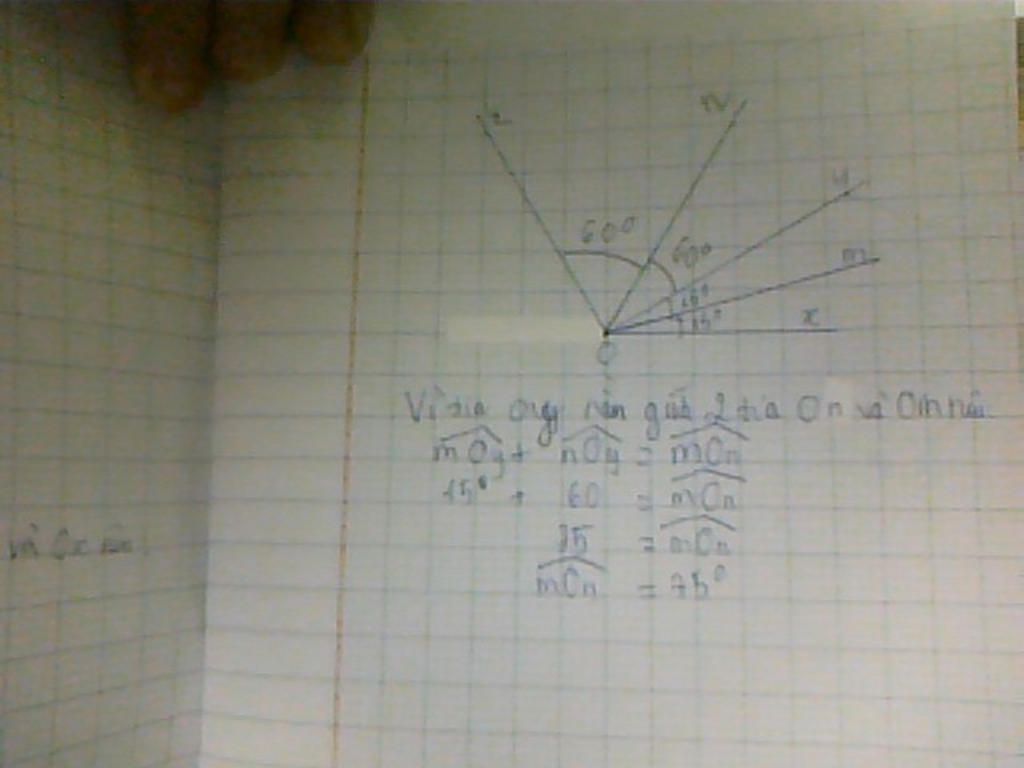 z
n
y
m
x
60°
60°
15°
15°
O
Vì tia Oy nằm giữa 2 tia On và Om nên
mOy + nOy = mOn
15° + 60 = mOn
75 = mOn
mOn = 75°
và Ox nên